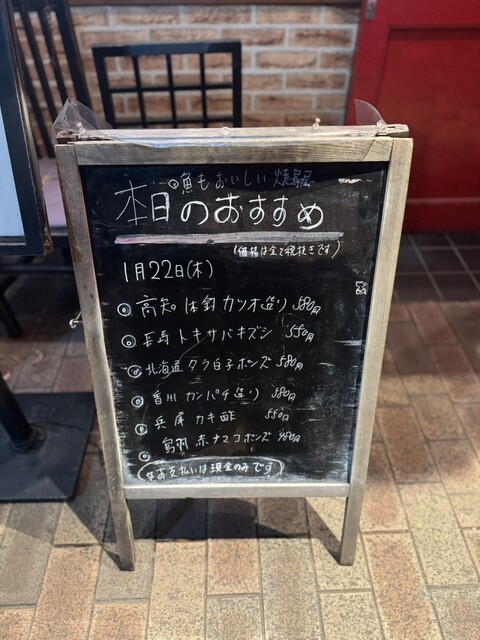 魚もおいしい焼鳥屋
本日のおすすめ
(価格は全て税抜きです)
1月22日(木)
◎高知 1本釣カツオ造り 580円
◎長崎 トキサバキズシ 550円
◎北海道 タラ白子ポンズ 580円
◎香川 カンパチ造り 580円
◎兵庫 カキ酢 550円
◎鳥羽 赤ナマコポンズ 円
お支払いは現金のみです